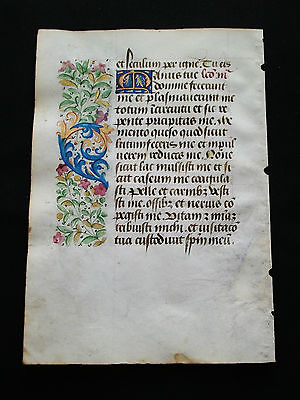 et seculum per ignē. Tu cis
Manus tue lcō iii
domine fecerunt
me et plasmauerunt me
totum ī circuitu et sic re
pente precipitas me. Me
mento queso quod sicut
lutum feceris me et in pul
uerem reduces me. Nonne
sicut lac mulsisti me et
sicut caseum me coagula
sti Pelle et carnibꝫ vesti
sti me. ossibꝫ et neruis co
pegisti me. Uitam et miaꝫ
tribuisti michi. et visitatio
tua custodiuit spm̄ meū.